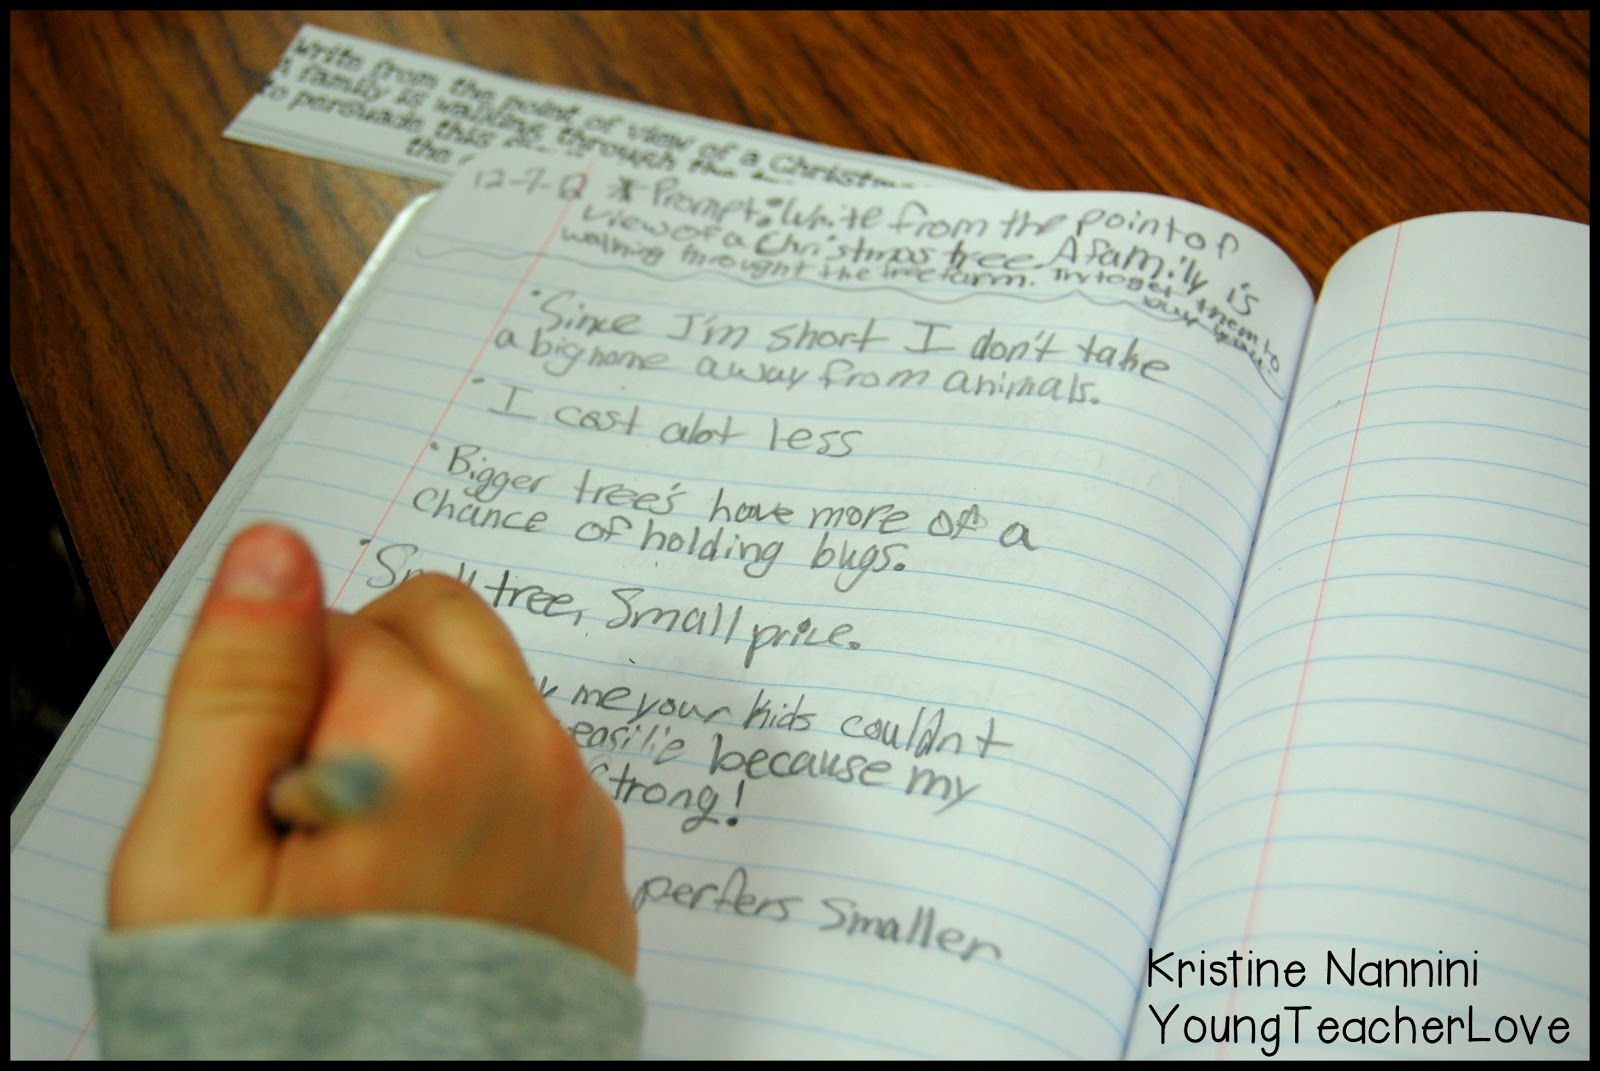 Write from the point of view of a Christm
A family is walking through the
to persuade this
the
12-7-12 * Prompt: Write from the point of
view of a Christmas tree. A family is
walking throught the tree farm. Try to get them to
buy you.
• Since I'm short I don't take
a big home away from animals.
• I cost alot less
• Bigger tree's have more of a
chance of holding bugs.
• Small tree, small price.
me your kids couldn't
easilie because my
strong!
perfers smaller
Kristine Nannini
YoungTeacherLove